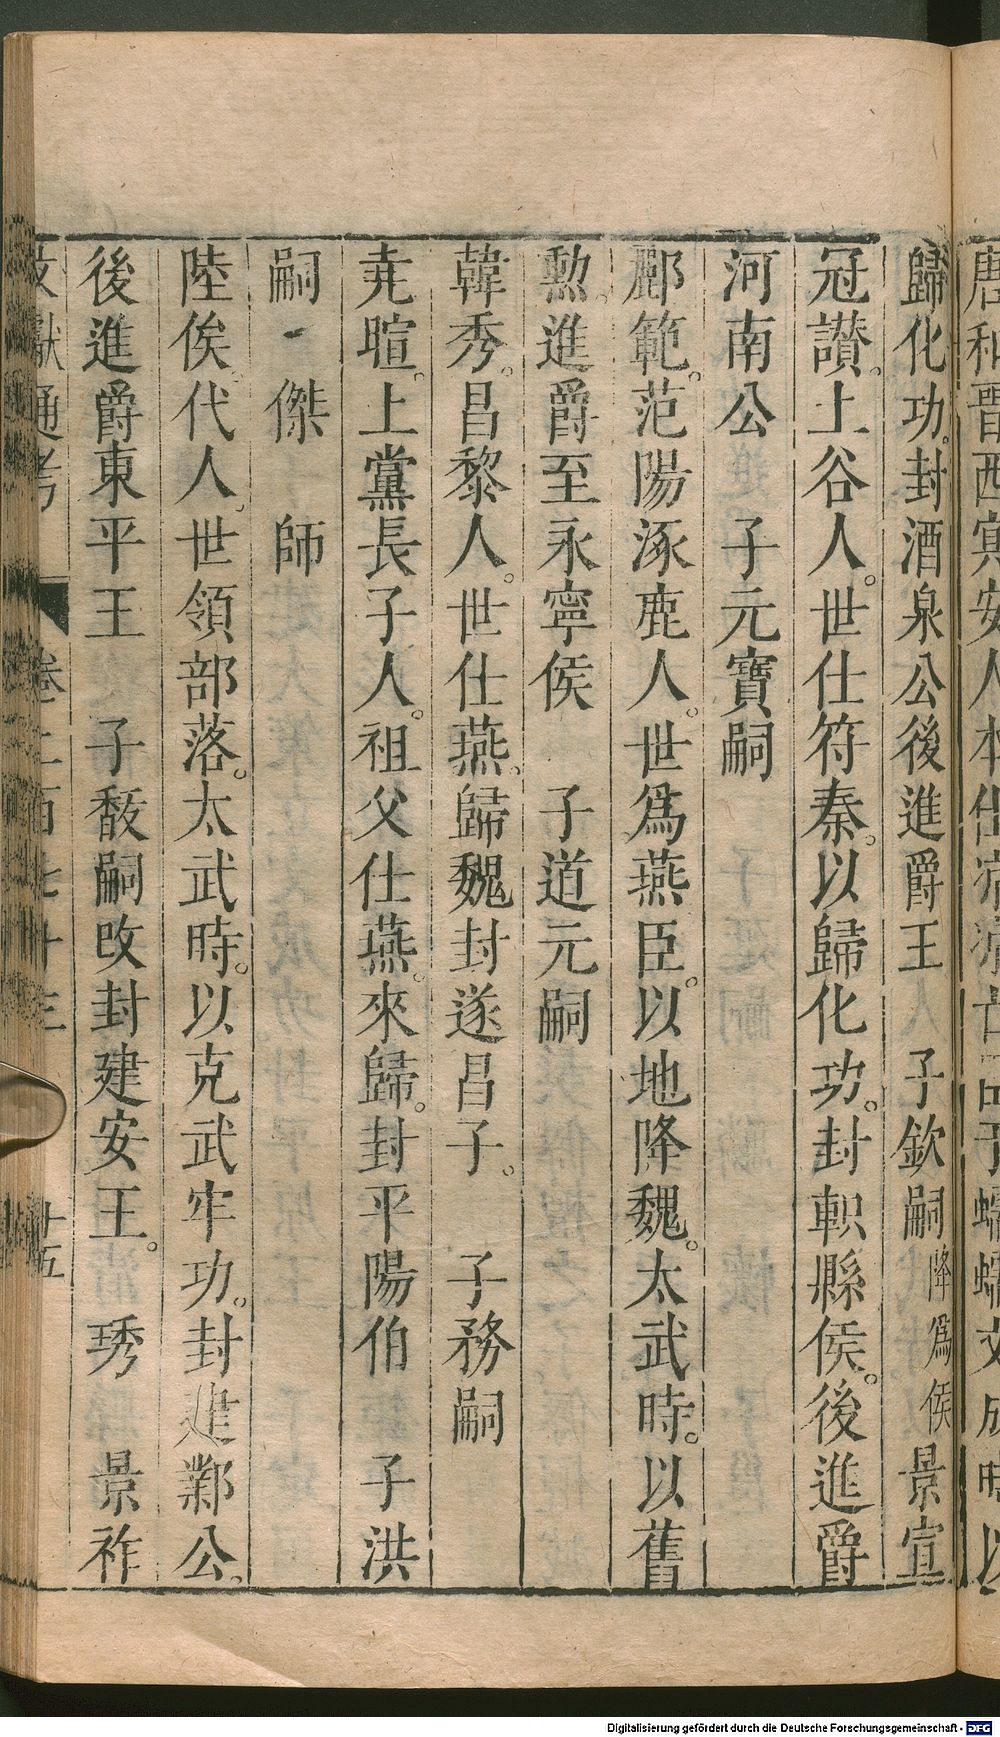 唐和晉西㝠安人本
歸化功封酒泉公後進爵王　子欽嗣降爲侯景宣
冦讃。上谷人。世仕符秦。以歸化功。封軹縣侯。後進爵
河南公　子元寶嗣
酈範。范陽涿鹿人。世爲燕臣。以地降魏。太武時。以舊
勲。進爵至永寧侯　子道元嗣
韓秀。昌黎人。世仕燕。歸魏封遂昌子。　子務嗣
尭暄。上黨長子人。祖父仕燕。來歸。封平陽伯　子洪
嗣　傑　師
陸俟。代人。世領部落。太武時。以克武牢功。封進鄴公。
後進爵東平王　子馛嗣改封建安王。　琇　景祚
文獻通考　卷二百七十三　十五
Digitalisierung gefördert durch die Deutsche Forschungsgemeinschaft - DFG